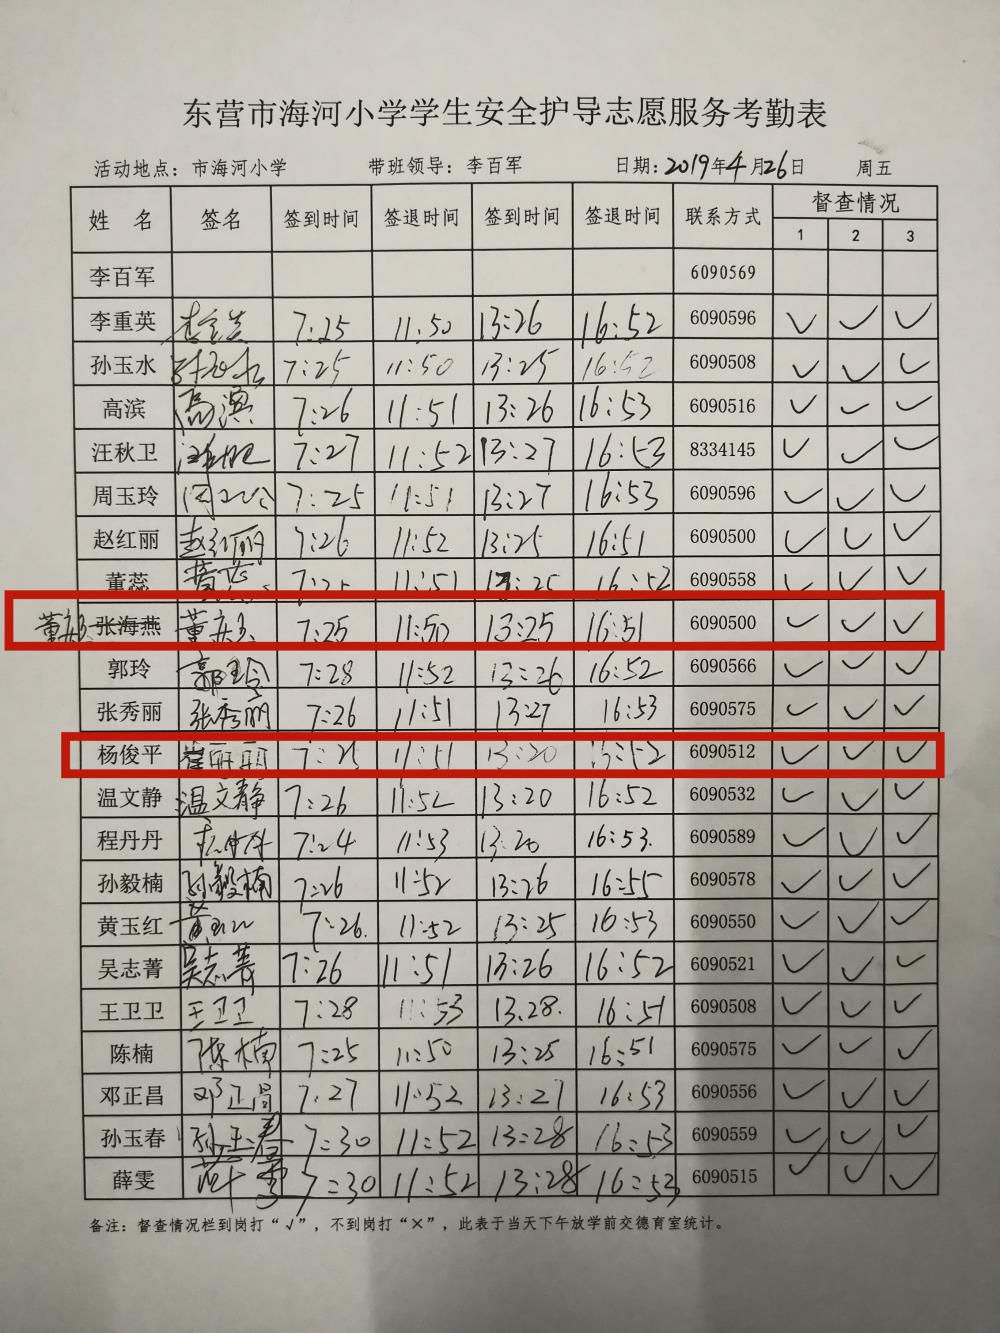 东营市海河小学学生安全护导志愿服务考勤表
活动地点：市海河小学 带班领导：李百军 日期：2019年4月26日 周五
姓 名 签名 签到时间 签退时间 签到时间 签退时间 联系方式 督查情况
1 2 3
李百军 6090569
李重英 李重英 7:25 11:50 13:26 16:52 6090596 √ √ √
孙玉水 孙玉水 7:25 11:50 13:25 16:52 6090508 √ √ √
高滨 高滨 7:26 11:51 13:26 16:53 6090516 √ √ √
汪秋卫 汪秋卫 7:27 11:52 13:27 16:53 8334145 √ √ √
周玉玲 周玉玲 7:25 11:51 13:27 16:53 6090596 √ √ √
赵红丽 赵红丽 7:26 11:52 13:25 16:51 6090500 √ √ √
董蕊 董蕊 7:25 11:51 13:25 16:52 6090558 √ √ √
张海燕 7:25 11:50 13:25 16:51 6090500 √ √ √
郭玲 郭玲 7:28 11:52 13:26 16:52 6090566 √ √ √
张秀丽 张秀丽 7:26 11:51 13:27 16:53 6090575 √ √ √
杨俊平 7:25 11:51 13:20 16:52 6090512 √ √ √
温文静 温文静 7:26 11:52 13:20 16:52 6090532 √ √ √
程丹丹 程丹丹 7:24 11:53 13:20 16:53. 6090589 √ √ √
孙毅楠 孙毅楠 7:26 11:52 13:26 16:55 6090578 √ √ √
黄玉红 黄玉红 7:26. 11:52 13:25 16:53 6090550 √ √ √
吴志菁 吴志菁 7:26 11:51 13:26 16:52 6090521 √ √ √
王卫卫 王卫卫 7:28 11:53 13.28. 16:51 6090508 √ √ √
陈楠 陈楠 7:25 11:50 13:25 16:51 6090575 √ √ √
邓正昌 邓正昌 7:27 11:52 13:27 16:53 6090556 √ √ √
孙玉春 孙玉春 7:30 11:52 13:28 16:53 6090559 √ √ √
薛雯 薛雯 7:30 11:52 13:28 16:53 6090515 √ √ √
备注：督查情况栏到岗打“√”，不到岗打“×”，此表于当天下午放学前交德育室统计。